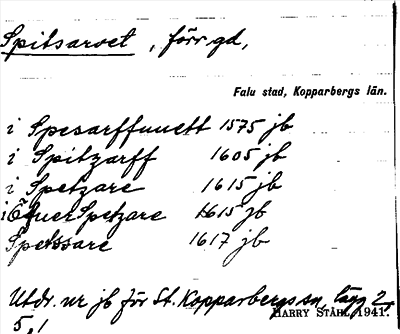 Spitsarvet, förr gd,
Falu stad, Kopparbergs län.
i Spesarffuuett 1575 jb
i Spitzarff 1605 jb
i Spetzare 1615 jb
i Öfuer Spetzare 1615 jb
Spetssare 1617 jb
Utdr. ur jb för St. Kopparbergs sn, lägg 2,
HARRY STÅHL 1941.
5,1